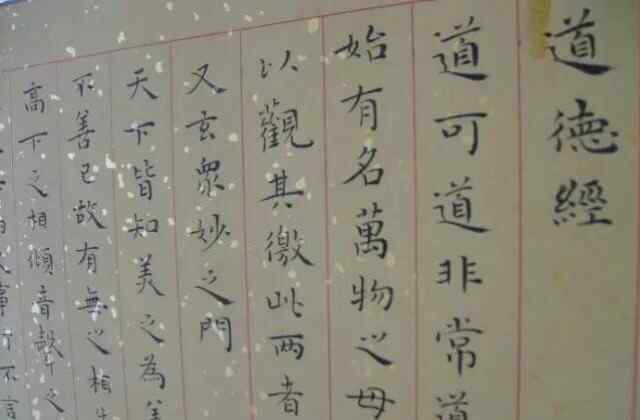 道德經
道可道非常道
始有名萬物之母
以觀其徼此两者
又玄眾妙之門
天下皆知美之為美
不善已故有無之相生
高下之相傾音聲之
事行不言